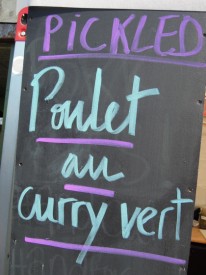 PICKLED
Poulet
au
curry vert